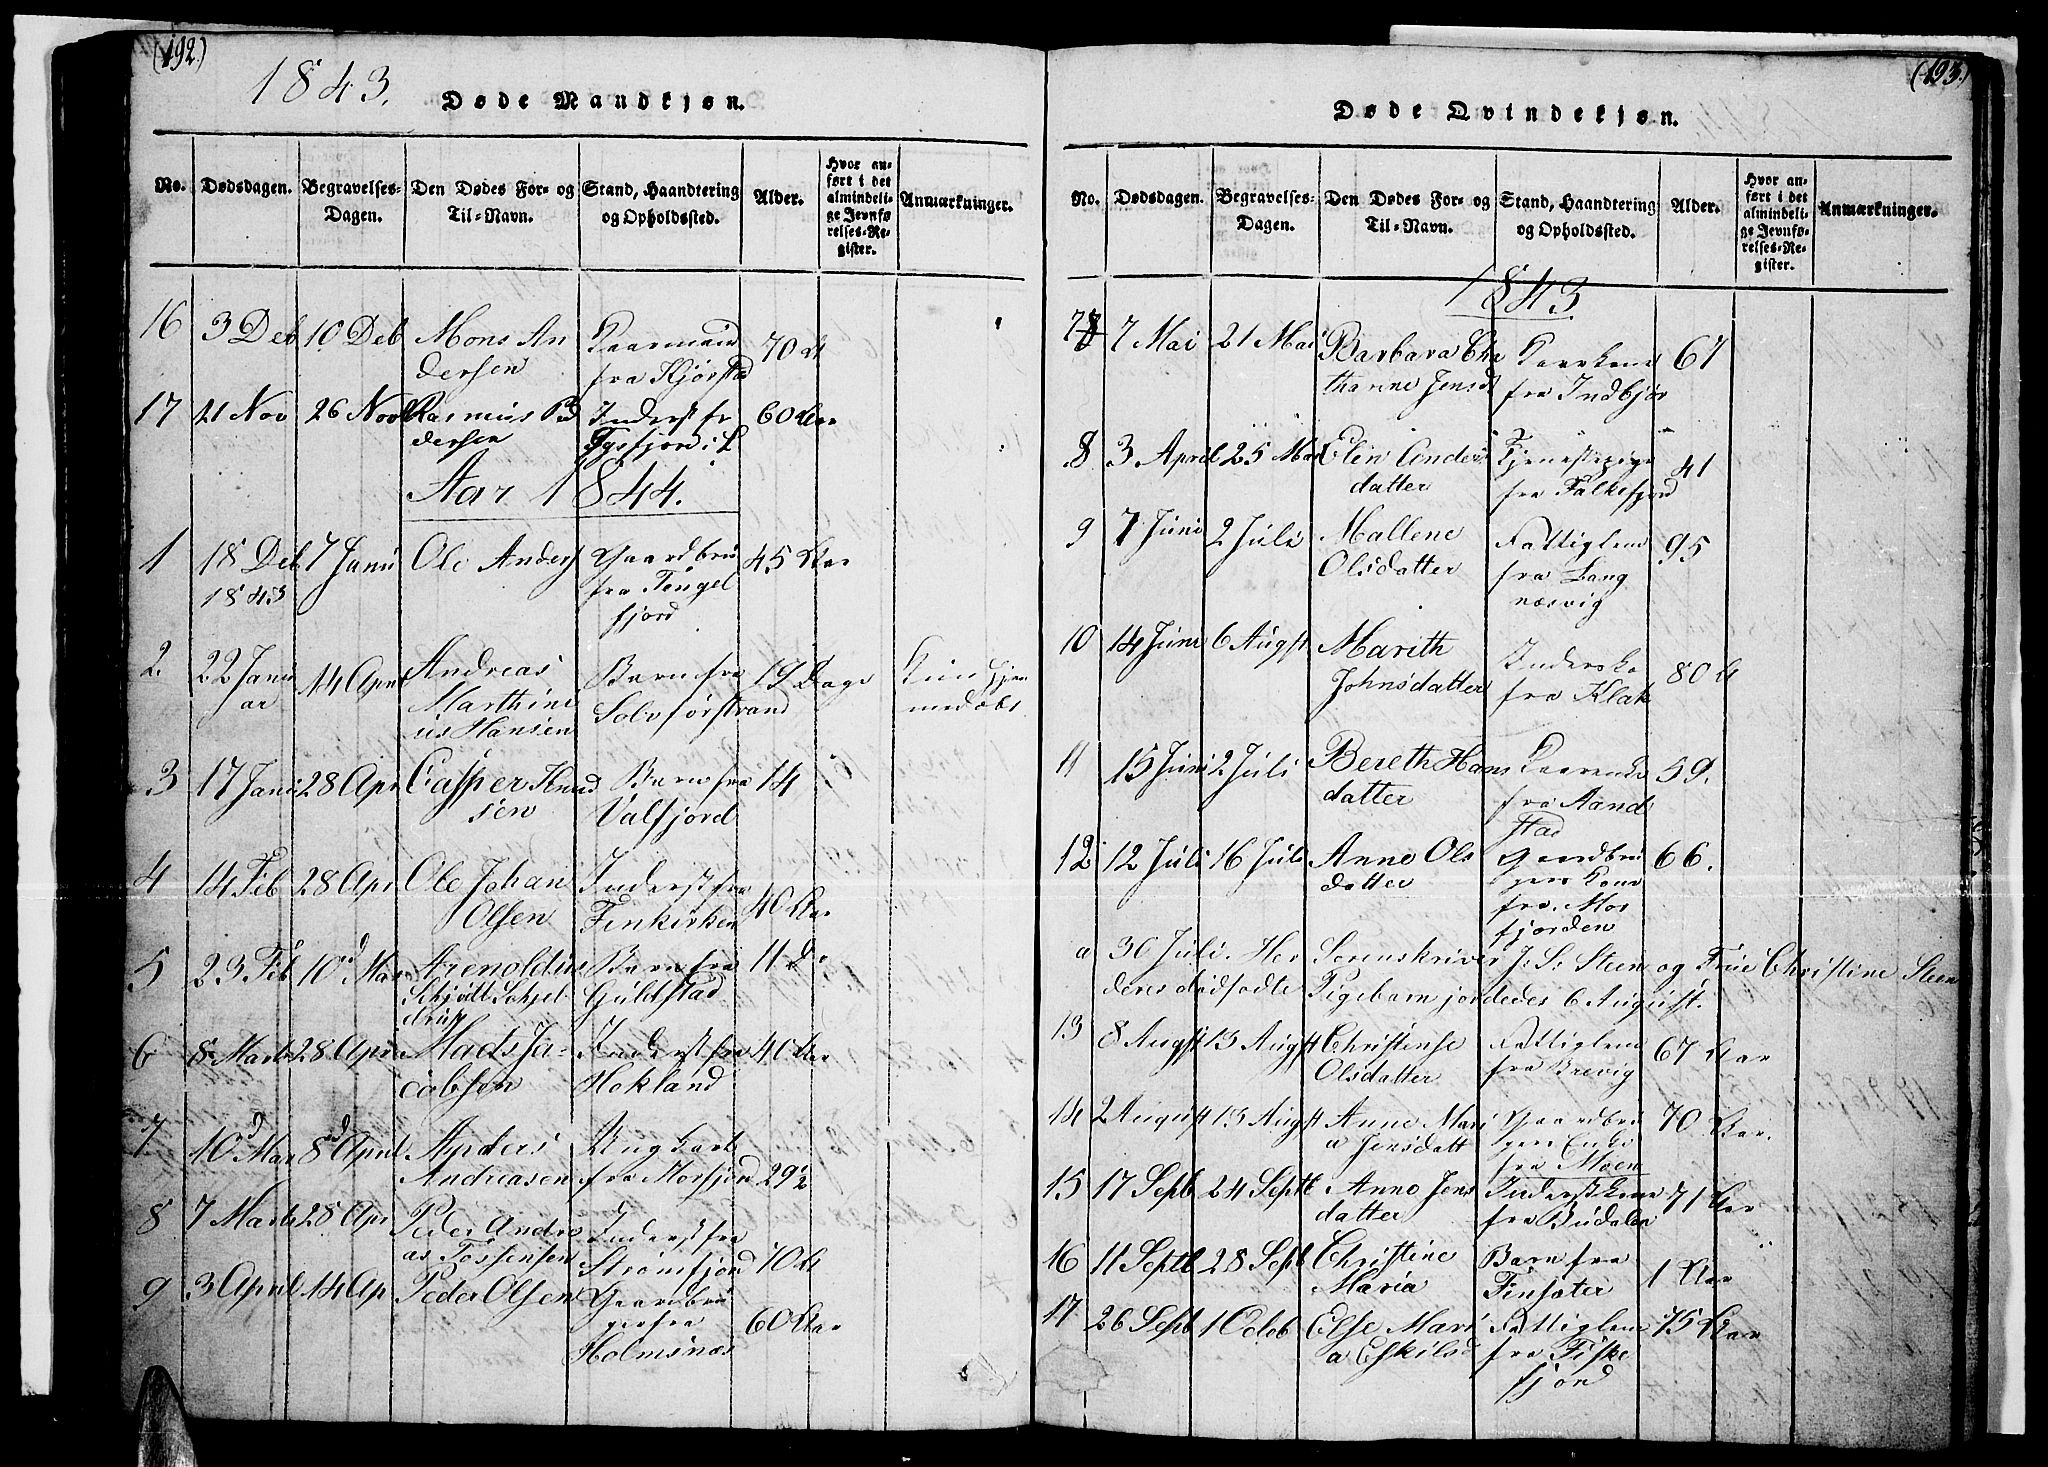 (192.)
1843.
Døde Mandkjøn.
No.
Dødsdagen.
Begravelses-
Dagen.
Den Dødes For- og
Til-Navn.
Stand, Haandtering
og Opholdssted.
Alder.
Hvor an-
ført i det
almindeli-
ge Jevnfø
relses-Re-
gister.
Anmærkninger.
16 3 Deb 10 Deb Mons An
dersen
fra Kjørstad
70
17 21 Nov 26 Nov Rasmus Pe
dersen
Inderst fr
Tysfjord i L
60 Aar
Aar 1844.
1 18 Deb 7 Janu Ole Anders
1843
Gaardbru
fra Tengel
fjord
45 Aar
2. 22 Janu
ar
14 Apr
Andreas
Marthini
us Hansen
Barn fra
Solvførstrand
19 Dage
Kun hjem
medøbt
3 17 Janu 28 Apr Casper Knud
sen
Barn fra
Valfjord
14
4 14 Feb 28 Apr Ole Johan
Olsen
Inderst fra
Finkirken
40 Aar
5 23 Feb 10d Mar Arenoldus
Schjøtt Schjel
drup
Barn fra
Guldstad
11 D
6 8 Marts 28 Apr Mads Ja-
cobsen
Inderst fra
Hokland
40 Aar
7. 10d Mar 8d April Anders
Andreasen
Ungkarl
fra Morfjord
29½
8 7 Marts 28 Apr Peder Andre
as Tossensen
Inderst fra
Strømfjord
70
9 3 April 14 Ap Peder Olsen
Gaardbru
ger fra
Holmsnæs
60 Aar
(193.)
Døde Qvindekjøn.
No.
Dødsdagen.
Begravelses-
Dagen.
Den Dødes For- og
Til-Navn.
Stand, Haandtering
og Opholdssted.
Alder.
Hvor an-
ført i det
almindeli-
ge Jevnfø-
relses-Re-
gister.
Anmærkninger.
1843
7 7 Mai 21 Mai Barbara Cha
tharine Jensd
fra Indbjør
67
8 3 April 25 Mar Elen Anders
datter
Tjenestepige
fra Falkefjord
41
9 7 Juni 2 Juli Mallene
Olsdatter
Fattiglem
fra Lang
næsvig
95
10 14 Juni 6 Augst Marith
Johnsdatter
Inderske
fra Klak
80
11 15 Juni 2 Juli Bereth Hans
datter
fra Aand
stad
59.
12 12 Juli 16 Juli Anne Ols
datter
Gaardbru
gers Kone
fra Mor
fjorden
66.
a 30 Juli. Her Sorenskriver J: S: Steen og Frue Christine Steen
deres dødfødte Pigebarn jordedes 6 August.
13 8 Augst 13 Augst Christense
Olsdatter
Fattiglem
fra Brevig
67 Aar
14 2 August 13 Augst Anne Mari
a Jensdatt
Gaardbru
gers Enke
fra Moen
70 Aar.
15 17 Septb 24 Septb Anne Jens
datter
Inderstkone
fra Budalen
71 Aar
16 11 Septb 28 Septb Christine
Maria
Barn fra
Finsæter
1 Aar
17 26 Septb 1 Octob Else Mari
a Eskilsd
Fattiglem
fra Fiske
fjord
75 Aar